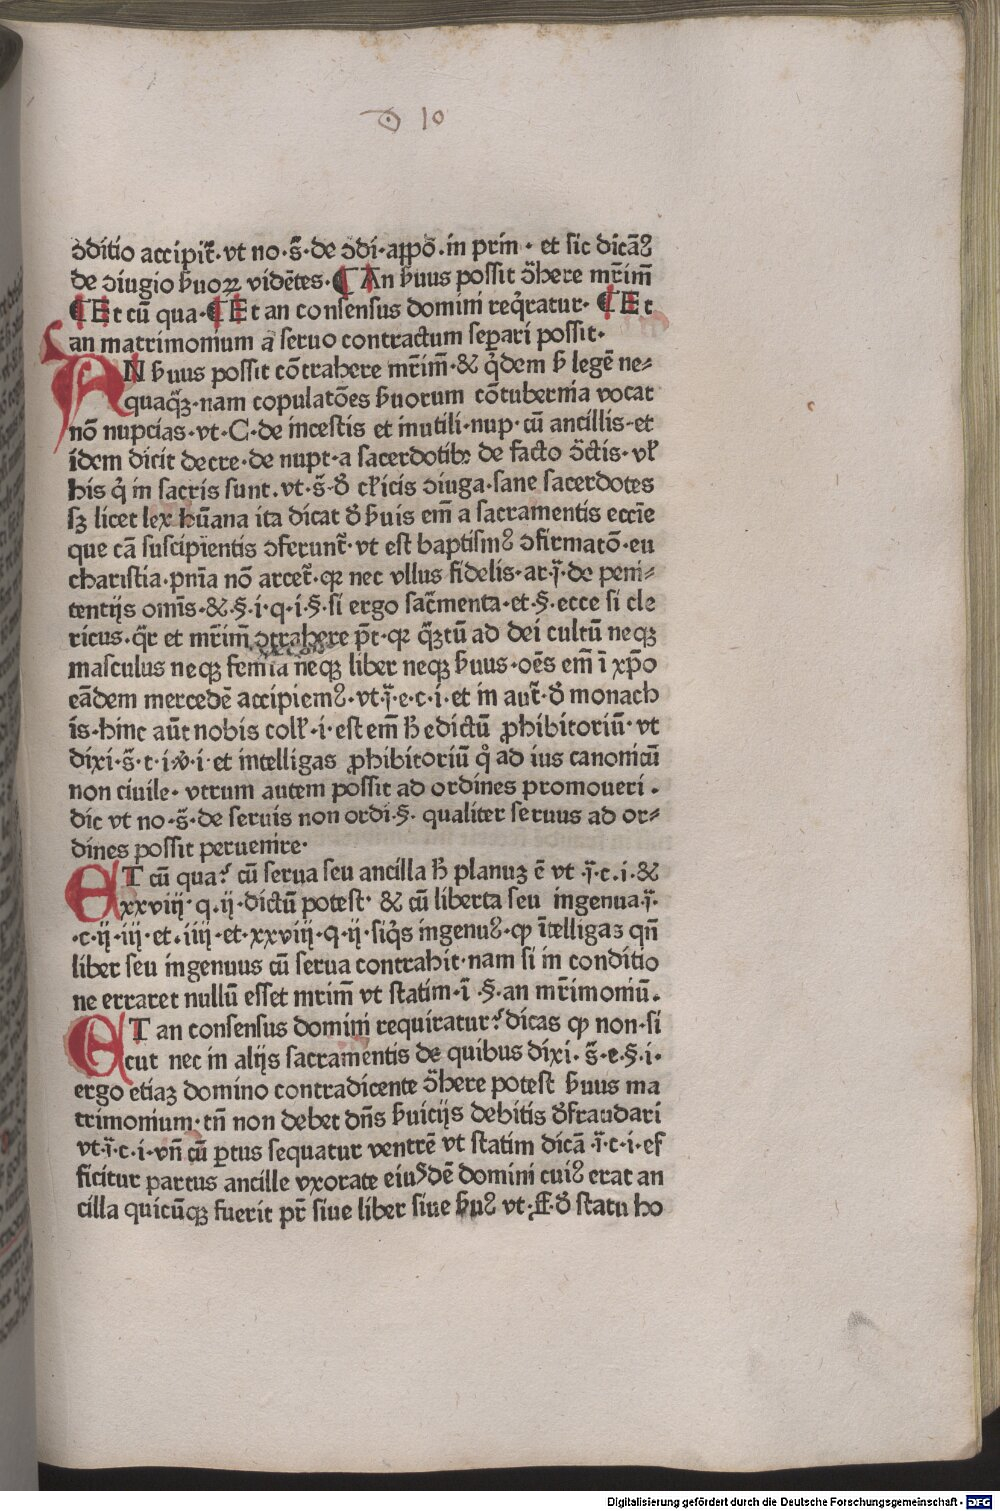 ꝺ 10
ↄditio accipit̃·vt no·s̃·de ↄdi·appõ·in prin·et sic dicãꝰ
de ↄiugio ẜuoꝝ vidētes·¶An ẜuus possit ↄ̃here mr̃im̃
¶Et cũ qua·¶Et an consensus domini req̃ratur·¶Et
an matrimonium a seruo contractum seꝑari possit·
AN ẜuus possit cõtrahere mr̃im̃·& q̃dem ẜ legẽ ne⸗
quaq̃ꝫ·nam copulatões ẜuorum cõtubernia vocat
nõ nupcias·vt·C·de incestis et inutili·nup·cũ ancillis·et
idem dicit decre·de nupt·a sacerdotibꝫ de facto ↄ̃ctis·vł
his q̃ in sacris sunt·vt·s̃·ð cł'icis ↄiuga·sane sacerdotes
sꝫ licet lex hũana ita dicat ð ẜuis em̃ a sacramentis eccl̃ie
que cã suscipientis ↄferunt̃·vt est baptismꝰ ↄfirmatõ·eu
charistia·pnĩa nõ arcet̃·qꝛ nec vllus fidelis·ar·j̃·de peni⸗
tentijs omĩs·&·§·i·q·i·§·si ergo sac̃menta·et·§·ecce si cle
ricus·q̃r et mr̃im̃ ↄtrahere pt̃·qꝛ q̃ꝫtũ ad dei cultũ neqꝫ
masculus neqꝫ femĩa neqꝫ liber neqꝫ ẜuus·oẽs em̃ ĩ xp̃o
eãdem mercedẽ accipiemꝰ·vt·j̃·e·c·i·et in aut̃·ð monach
ĩs·hinc aũt nobis coll'·i·est em̃ h̃ edictũ ꝓhibitoriũ·vt
dixi·s̃·t·i·v̊·i·et intelligas ꝓhibitoriũ q̊ ad ius canonicũ
non ciuile·vtrum autem possit ad ordines promoueri·
dic vt no·s̃·de seruis non ordi·§·qualiter seruus ad or⸗
dines possit peruenire·
ET cũ qua? cũ serua seu ancilla h̃ planuꝫ ẽ vt·j̃·c·i·&
xxviij·q·ij·dictũ potest·& cũ liberta seu ingenua·j̃·
·c·ij·iij·et·iiij·et·xxviij·q·ij·siq̃s ingenuꝰ·ꝙ ĩtelligaꝫ qñ
liber seu ingenuus cũ serua contrahit·nam si in conditio
ne erraret nullũ esset mrim̃ vt statim·ĩ·§·an mr̃imoniũ·
ET an consensus domini requiratur? dicas ꝙ non·si
cut nec in alijs sacramentis de quibus dixi·s̃·e·§·i·
ergo etiaꝫ domino contradicente ↄ̃here potest ẜuus ma
trimonium·tñ non debet dñs ẜuicijs debitis ðfraudari
vt·j̃·c·i·vñ cũ ꝑtus sequatur ventrẽ vt statim dicã·j̃·c·i·ef
ficitur partus ancille vxorate eiuꝰdẽ domini cuiꝰ erat an
cilla quicũqꝫ fuerit pr̃ siue liber siue ẜuꝰ vt·ff·ð statu ho
Digitalisierung gefördert durch die Deutsche Forschungsgemeinschaft - DFG